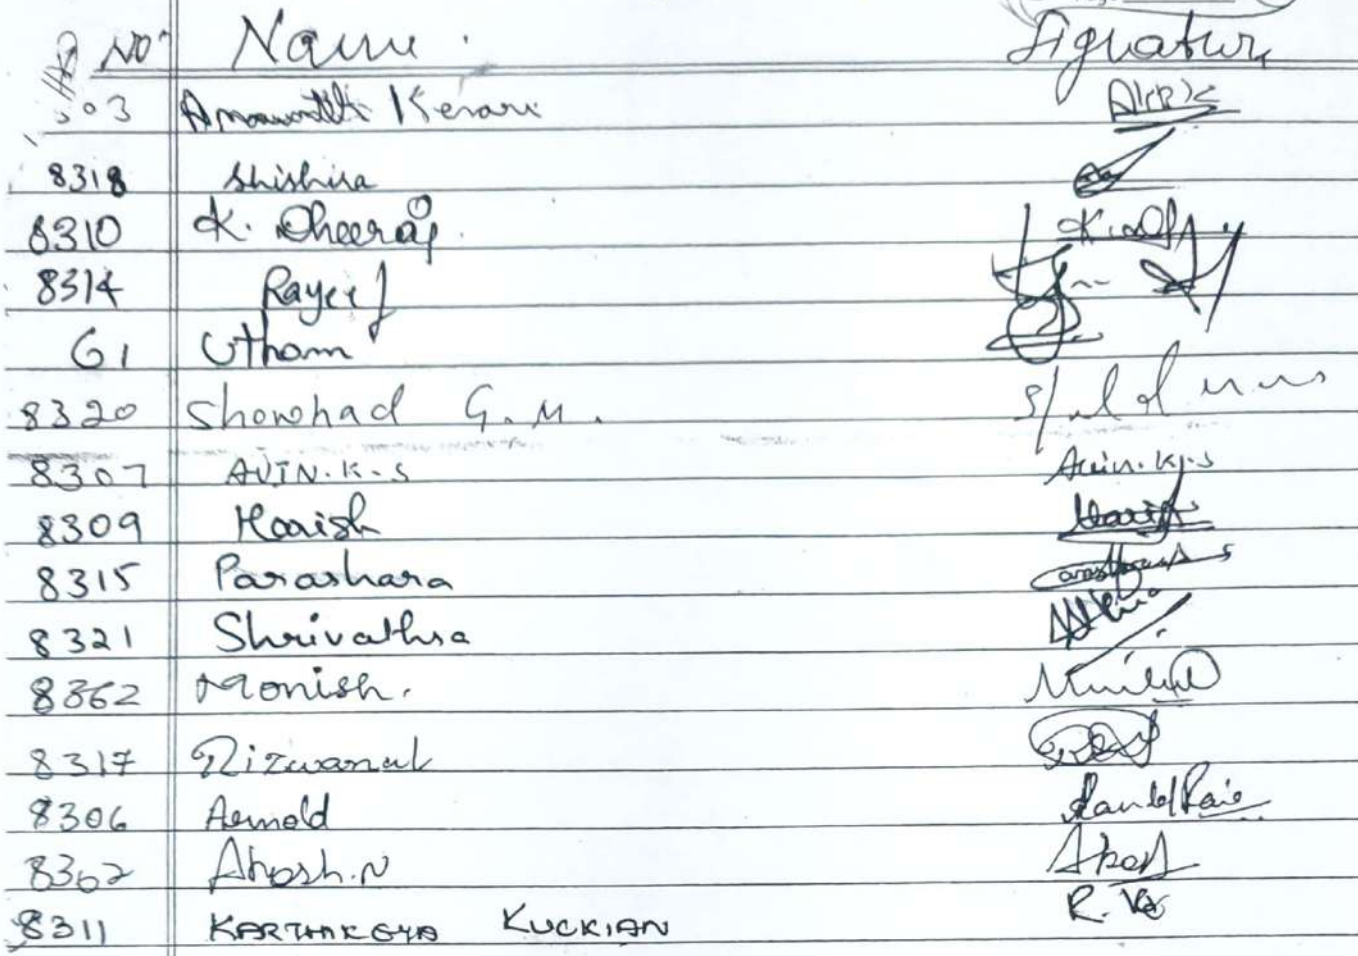 NO Name. Signature
03 Kesari
8318 Shishira
8310 K. Dheeraj
8314 Rayee J
61 Utham
8320 Showhad G.M.
8307 AVIN.K.S Avin.K.S
8309 Harish Harish
8315 Parashara
8321 Shrivathsa
8362 Monish.
8317 Rizwanul
8306 Arnold
8302 Akash.N Akash
8311 KARTHIKEYA KUCKIAN R.